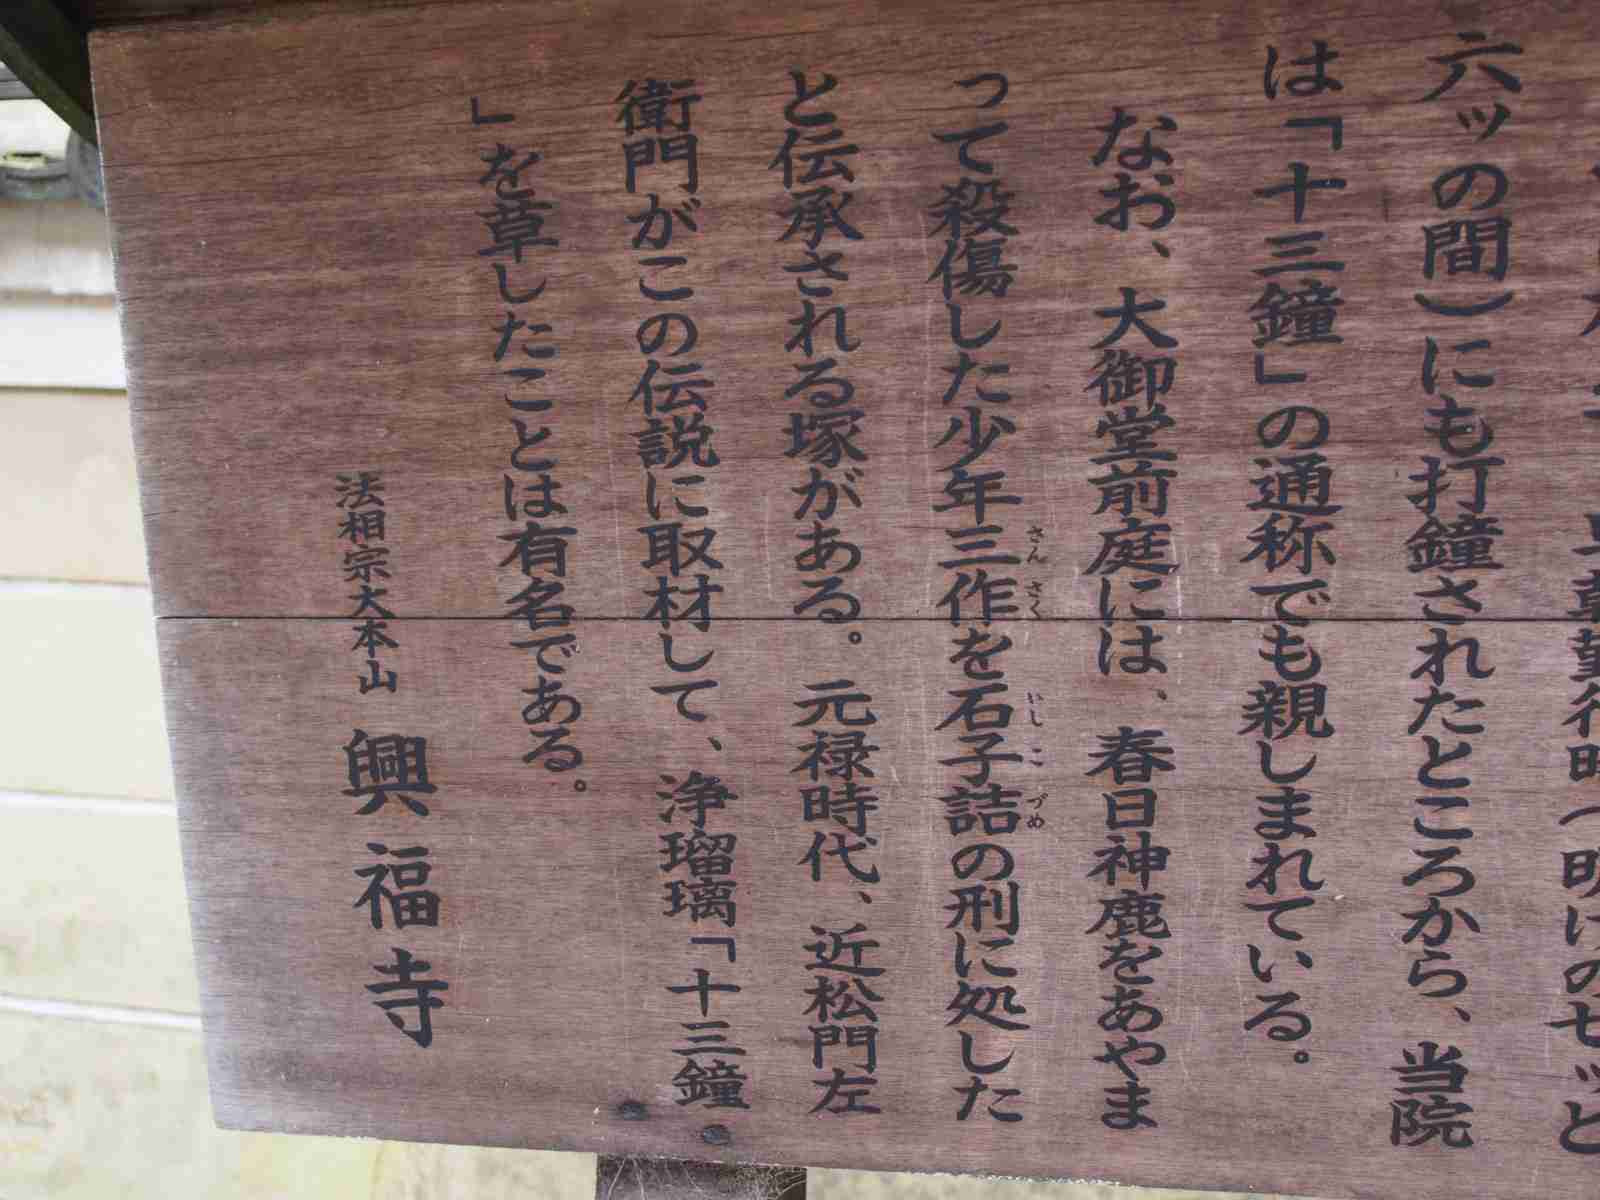 早朝勤行時(明けの七ッと
六ッの間)にも打鐘されたところから、当院
は「十三鐘」の通称でも親しまれている。
なお、大御堂前庭には、春日神鹿をあやま
って殺傷した少年三作を石子詰の刑に処した
と伝承される塚がある。元禄時代、近松門左
衛門がこの伝説に取材して、浄瑠璃「十三鐘
」を章したことは有名である。
法相宗大本山 興福寺